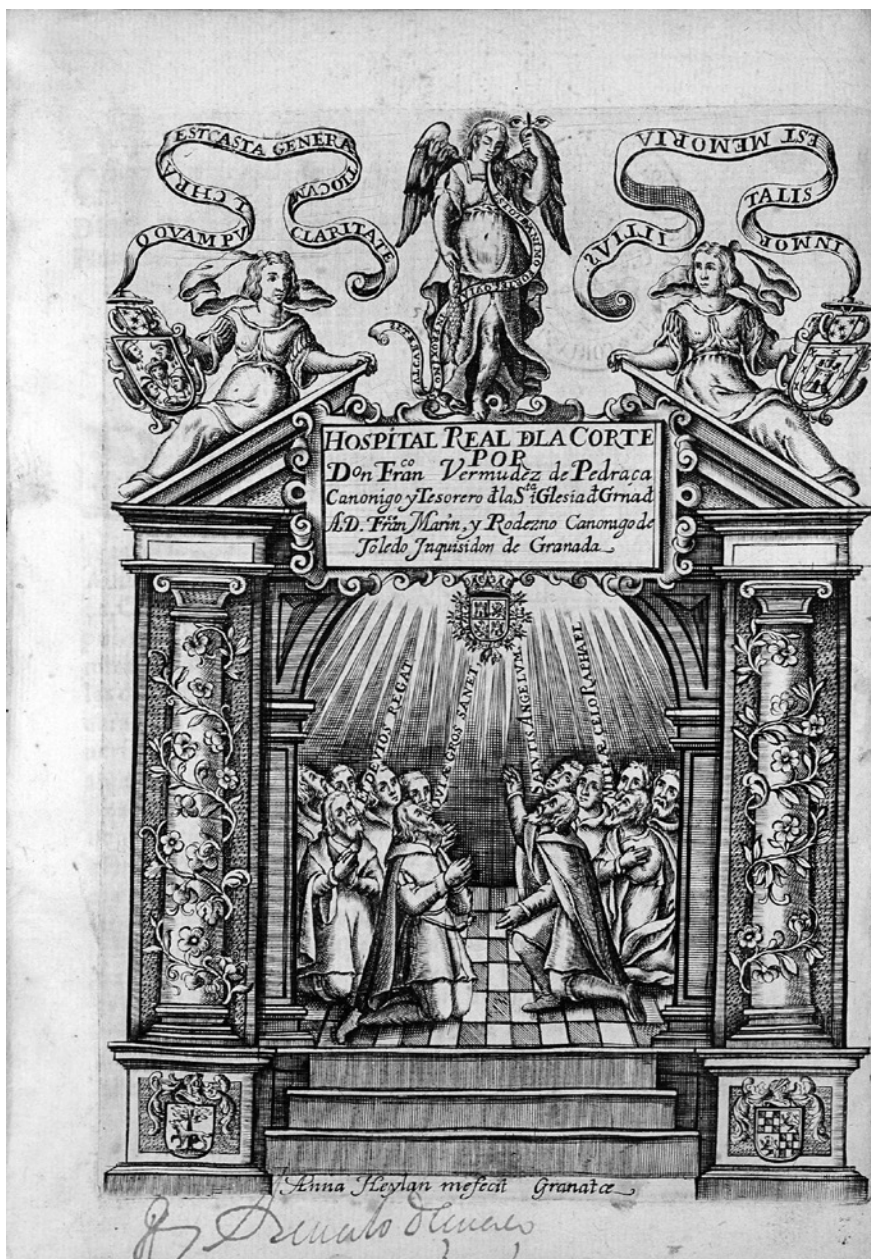 O QVAM PV
L CHRA
EST CASTA GENERA
TIO CVM
CLARITATE
INMOR
TALIS
EST MEMORIA
ILLIAS
HOSPITAL REAL DLA CORTE
POR
Don Fran^co Vermudez de Pedraca
Canonigo y Tesorero dla S^ta iGlesia d Grnad
A.D. Fran Marin, y Rodezno Canonigo de
Toledo Inquisidon de Granada
DEVIOS REGAT
QVI ÆGROS SANET
SALVTIS ANGELVM
RAPHAEL
Anna Heylan mefecit Granatæ